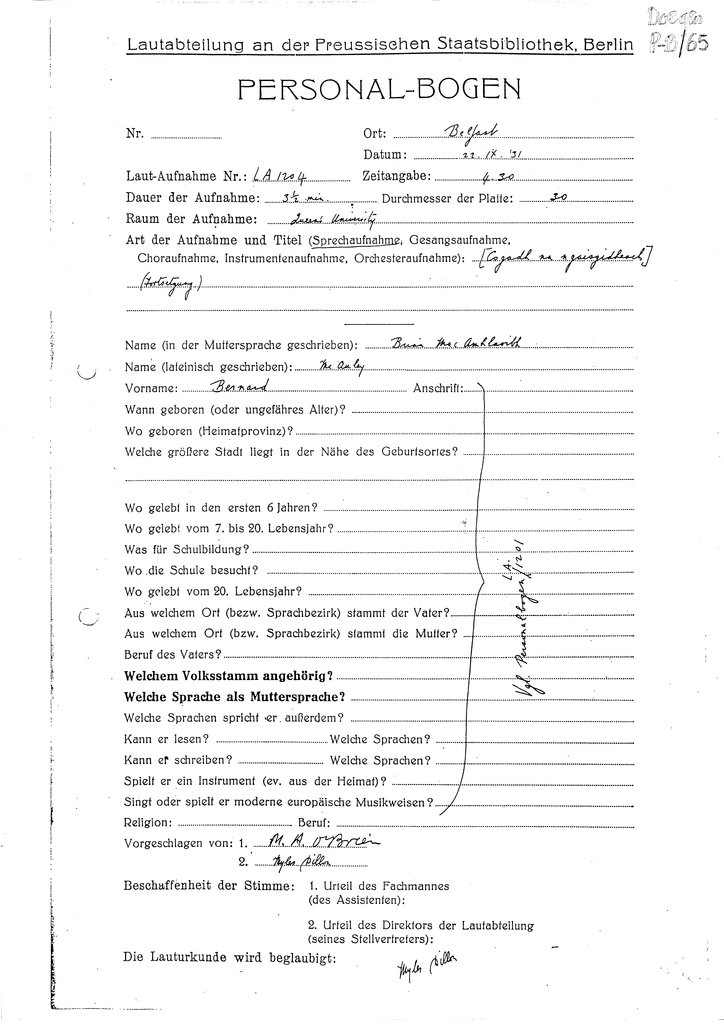 Doegen
P-B/65
Lautabteilung an der Preussischen Staatsbibliothek, Berlin
PERSONAL-BOGEN
Nr. Ort: Belfast
Datum: 22. IX. '31
Laut-Aufnahme Nr.: LA 1204 Zeitangabe: 4.30
Dauer der Aufnahme: 3½ min. Durchmesser der Platte: 30
Raum der Aufnahme: Queens University
Art der Aufnahme und Titel (Sprechaufnahme, Gesangsaufnahme,
Choraufnahme, Instrumentenaufnahme, Orchesteraufnahme): [Cogadh na
(Fortsetzung)
Name (in der Muttersprache geschrieben): Brian Mac Amhlaoibh
Name (lateinisch geschrieben): Mc Auley
Vorname: Bernard Anschrift:
Wann geboren (oder ungefähres Alter)?
Wo geboren (Heimatprovinz)?
Welche größere Stadt liegt in der Nähe des Geburtsortes?
Wo gelebt in den ersten 6 Jahren?
Wo gelebt vom 7. bis 20. Lebensjahr?
Was für Schulbildung?
Wo die Schule besucht?
Wo gelebt vom 20. Lebensjahr?
Aus welchem Ort (bezw. Sprachbezirk) stammt der Vater?
Aus welchem Ort (bzw. Sprachbezirk) stammt die Mutter?
Beruf des Vaters?
Welchem Volksstamm angehörig?
Welche Sprache als Muttersprache?
Welche Sprachen spricht er außerdem?
Kann er lesen? Welche Sprachen?
Kann er schreiben? Welche Sprachen?
Spielt er ein Instrument (ev. aus der Heimat)?
Singt oder spielt er moderne europäische Musikweisen?
Vgl. Personalbogen LA. 1201
Religion: Beruf:
Vorgeschlagen von: 1. M. A. O'Brien
2. Myles Dillon
Beschaffenheit der Stimme: 1. Urteil des Fachmannes
(des Assistenten):
2. Urteil des Direktors der Lautabteilung
(seines Stellvertreters):
Die Lauturkunde wird beglaubigt: Myles Dillon